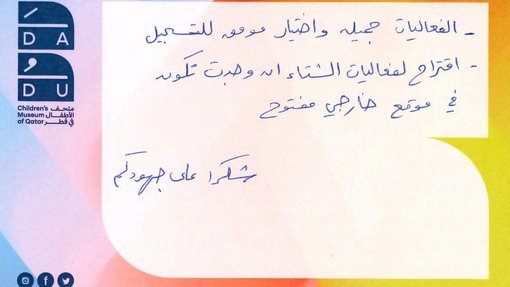 DA
DU
Children's
Museum
of Qatar
متحف
الأطفال
في قطر
- الفعاليات جميله واختيار موفق للتسجيل
- اقتراح لفعاليات الشتاء ان وجدت تكون
في موقع خارجي مفتوح
شكرا على جهودكم